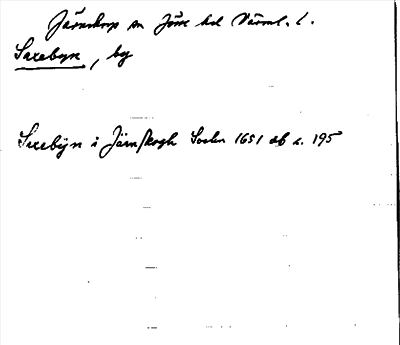 Järnskog sn Jösse hd Värml. l.
Saxebyn, by
Saxebÿn i Järnskogh Sochn 1651 ab s. 195